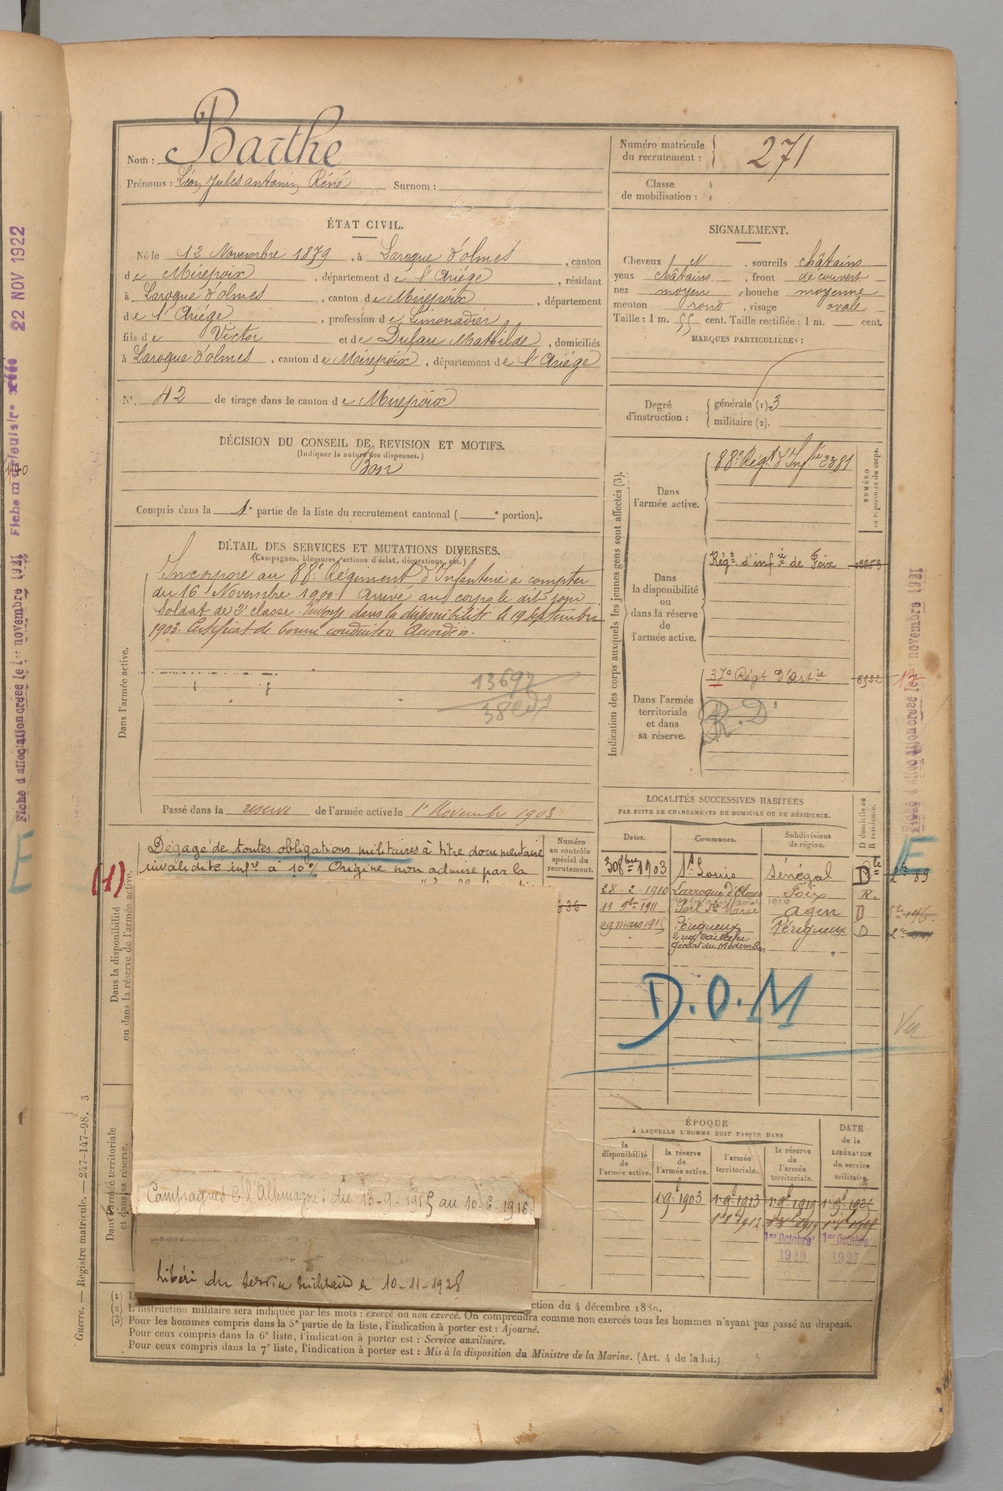 Nom : Barthe
Prénoms : Léon Jules antonin Réné Surnom :
Numéro matricule du recrutement : 271
Classe de mobilisation :
ÉTAT CIVIL.
Né le 12 Novembre 1879, à Laroque d'olmes, canton
de Mirepoix, département de l'Ariége, résidant
à Laroque d'olmes, canton de Mirepoix, département
de l'Ariége, profession de Limonadier
fils de Victor et de Dufau Mathilde, domiciliés
à Laroque d'olmes, canton de Mirepoix, département de l'Ariége
N° 42 de tirage dans le canton de Mirepoix
SIGNALEMENT.
Cheveux et, sourcils châtains
yeux châtains, front découvert
nez moyen, bouche moyenne
menton rond, visage ovale
Taille : 1 m. 55 cent. Taille rectifiée : 1 m. cent.
MARQUES PARTICULIÈRES :
Degré d'instruction : générale (1). 3
militaire (2).
DÉCISION DU CONSEIL DE REVISION ET MOTIFS.
(Indiquer la nature des dispenses.)
Bon
Compris dans la 1e partie de la liste du recrutement cantonal ( e portion).
DÉTAIL DES SERVICES ET MUTATIONS DIVERSES.
(Campagnes, blessures, actions d'éclat, décorations, etc.)
Dans l'armée active.
Incorporé au 88e Régiment d'Infanterie à compter
du 16 Novembre 1900. Arrivé au corps le dit jour
Soldat de 2e classe. Envoyé dans la disponibilité le 19 septembre
1903. Certificat de bonne conduite Accordé.
13692
Passé dans la reserve de l'armée active le 1er Novembre 1903
Indication des corps auxquels les jeunes gens sont affectés (3).
Dans l'armée active.
88e Régt d'Infrie 2381
NUMÉRO
Dans la disponibilité ou dans la réserve de l'armée active.
Régt d'infrie de Foix
Dans l'armée territoriale et dans sa réserve.
37e Régt d'Artie
R.D
Dans la disponibilité
ou dans la réserve de l'armée active.
(1)
Dégagé de toutes obligations militaires à titre documentaire
invalidité infre à 10% Origine non admise par la
Numéro au contrôle spécial du recrutement.
LOCALITÉS SUCCESSIVES HABITÉES
PAR SUITE DE CHANGEMENTS DE DOMICILE OU DE RÉSIDENCE.
Dates. Communes. Subdivisions de région. D domicile ou R résidence.
30 8bre 1903 St Louis Sénégal D
28-2-1910 Larroque d'Olmes Foix R.
11 9bre 1911 Port Ste Marie Agen D
29 mars 1915 Périgueux Périgueux D
D.O.M
Vu
Dans l'armée territoriale
et dans sa réserve.
Campagnes c/ l'Allemagne : du 13-9-1915 au 10-6-1916.
Libéré du service militaire le 10-11-1928
ÉPOQUE
À LAQUELLE L'HOMME DOIT PASSER DANS
la disponibilité de l'armée active.
la réserve de l'armée active.
l'armée territoriale.
la réserve de l'armée territoriale.
DATE de la LIBÉRATION du service militaire.
1er Octobre 1920
1er Octobre 1927
ction du 4 décembre 1889.
L'instruction militaire sera indiquée par les mots : exercé ou non exercé. On comprendra comme non exercés tous les hommes n'ayant pas passé au drapeau.
Pour les hommes compris dans la 5e partie de la liste, l'indication à porter est : Ajourné.
Pour ceux compris dans la 6e liste, l'indication à porter est : Service auxiliaire.
Pour ceux compris dans la 7e liste, l'indication à porter est : Mis à la disposition du Ministre de la Marine. (Art. 4 de la loi.)
Guerre. — Registre matricule. — 247-147-98. 3
22 NOV 1922
Fiche d'affectation créée le 1er novembre 1921